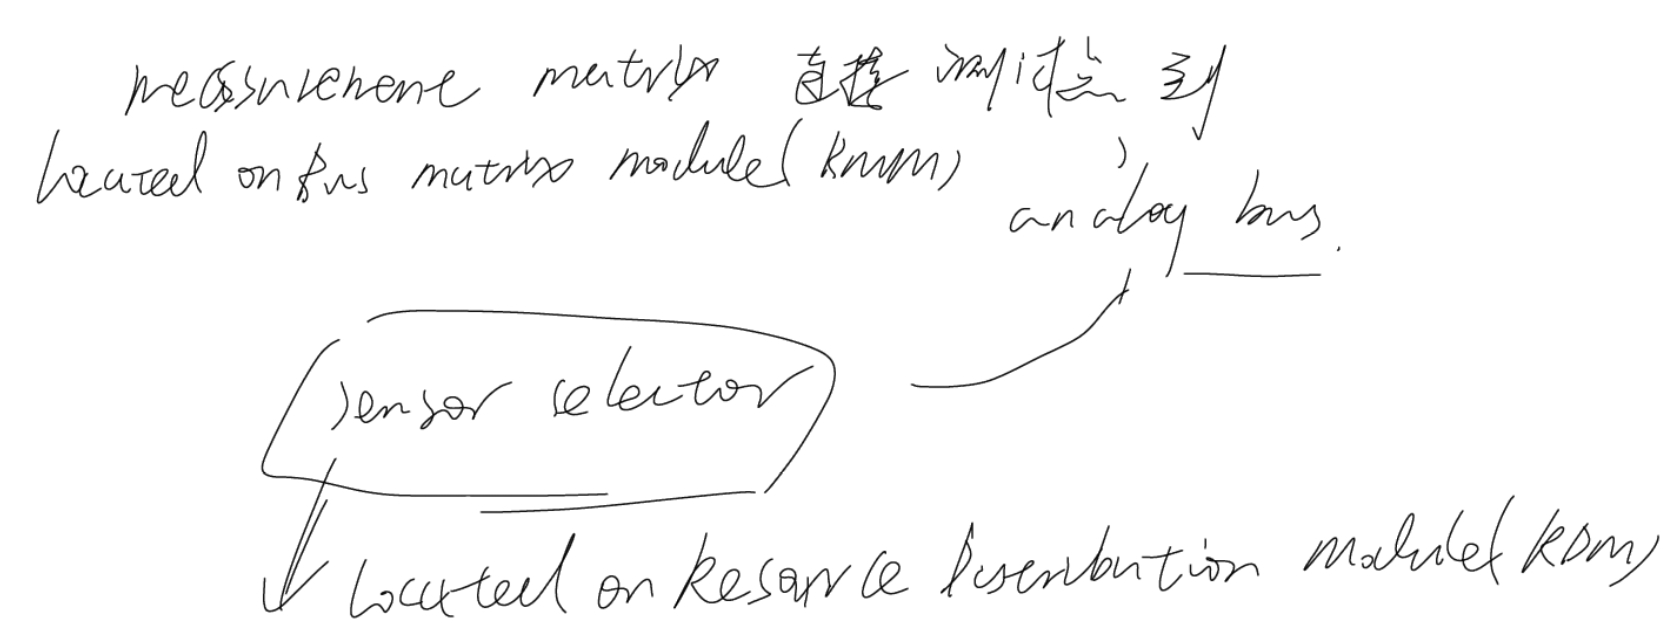 measurement matrix 直接 测试点 到
Located on Bus matrix module (RMM)
analog bus.
sensor selector
Located on Resource Distribution module (RDM)